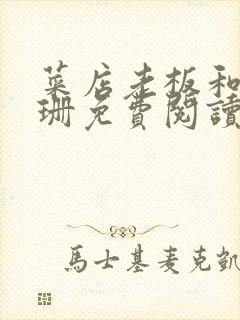 菜店老板和
珊免費閱讀
馬士基麦克凱